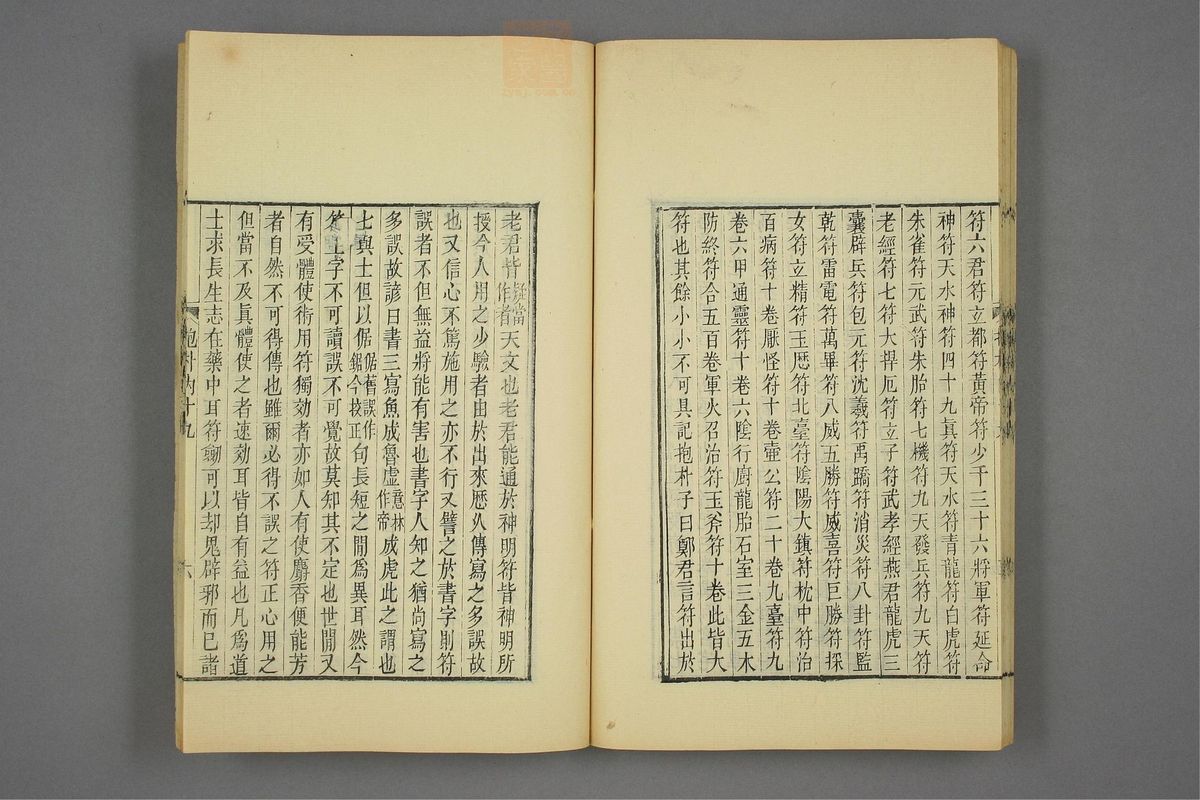 符六君符立都符黃帝符少千三十六將軍符延命
神符天水神符四十九眞符天水符青龍符白虎符
朱雀符元武符朱胎符七機符九天發兵符九天符
老經符七符大捍厄符立子符武孝經燕君龍虎三
囊辟兵符包元符沈羲符禹蹻符消災符八卦符監
乾符雷電符萬畢符八威五勝符威喜符巨勝符採
女符立精符玉歷符北臺符陰陽大鎮符枕中符治
百病符十卷厭怪符十卷壺公符二十卷九臺符九
卷六甲通靈符十卷六陰行廚龍胎石室三金五木
防終符合五百卷軍火召治符玉斧符十卷此皆大
符也其餘小小不可具記抱朴子曰鄭君言符出於
老君皆疑當作者天文也老君能通於神明符皆神明所
授今人用之少驗者由於出來歷久傳寫之多誤故
也又信心不篤施用之亦不行又譬之於書字則符
誤者不但無益將能有害也書字人知之猶尚寫之
多誤故諺曰書三寫魚成魯虚意林作帝成虎此之謂也
七與士但以倨倨舊誤作鋸今挍正句長短之閒爲異耳然今
符上字不可讀誤不可覺故莫知其不定也世閒又
有受體使術用符獨効者亦如人有使麝香便能芳
者自然不可得傳也雖爾必得不誤之符正心用之
但當不及眞體使之者速効耳皆自有益也凡爲道
士求長生志在藥中耳符劒可以却鬼辟邪而已諸
抱朴内十九
六